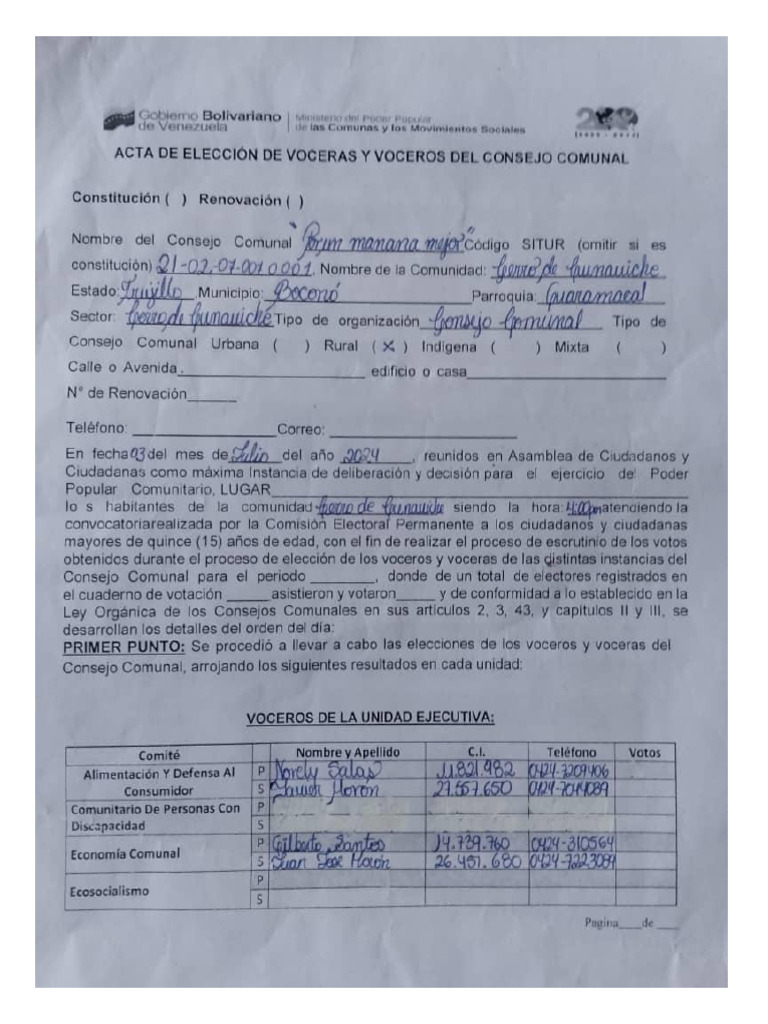 Gobierno Bolivariano de Venezuela | Ministerio del Poder Popular de las Comunas y los Movimientos Sociales
ACTA DE ELECCIÓN DE VOCERAS Y VOCEROS DEL CONSEJO COMUNAL
Constitución ( ) Renovación ( )
Nombre del Consejo Comunal "Por un manana mejor" Código SITUR (omitir si es
constitución) 21-02-07-001 0001. Nombre de la Comunidad: Cerro de
Estado: Trujillo Municipio: Boconó Parroquia: Guaramacal
Sector: Cerro de Tipo de organización Consejo Comunal Tipo de
Consejo Comunal Urbana ( ) Rural ( X ) Indigena ( ) Mixta ( )
Calle o Avenida, edificio o casa
N° de Renovación
Teléfono: Correo:
En fecha 03 del mes de Julio del año 2024, reunidos en Asamblea de Ciudadanos y
Ciudadanas como máxima Instancia de deliberación y decisión para el ejercicio del Poder
Popular Comunitario, LUGAR
lo s habitantes de la comunidad Cerro de siendo la hora: 4:00pm atenciendo la
convocatoriarealizada por la Comisión Electoral Permanente a los ciudadanos y ciudadanas
mayores de quince (15) años de edad, con el fin de realizar el proceso de escrutinio de los votos
obtenidos durante el proceso de elección de los voceros y voceras de las distintas instancias del
Consejo Comunal para el periodo , donde de un total de electores registrados en
el cuaderno de votación asistieron y votaron y de conformidad a lo establecido en la
Ley Orgánica de los Consejos Comunales en sus articulos 2, 3, 43, y capitulos II y III, se
desarrollan los detalles del orden del día:
PRIMER PUNTO: Se procedió a llevar a cabo las elecciones de los voceros y voceras del
Consejo Comunal, arrojando los siguientes resultados en cada unidad:
VOCEROS DE LA UNIDAD EJECUTIVA:
Comité Nombre y Apellido C.I. Teléfono Votos
Alimentación Y Defensa Al Consumidor P Norely Salas 11.821.982 0424-7209406
S Javier Moron 27.557.650 0424-7044089
Comunitario De Personas Con Discapacidad P
S
Economía Comunal P Gilberto Santos 14.739.760 0424-310564
S Juan Jose Morón 26.457.680 0424-7223089
Ecosocialismo P
S
Pagina de